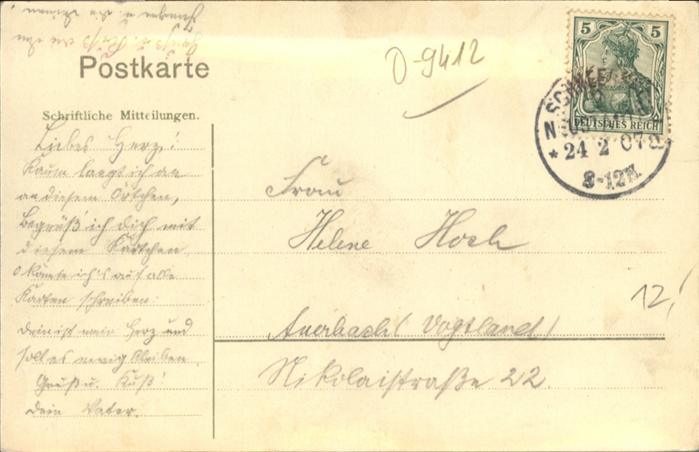 Postkarte
Schriftliche Mitteilungen.
Liebes Herz!
Kaum langt ich an
an diesem Örtchen,
Begrüß' ich Dich mit
diesem Kärtchen
O könnte ich's auf alle
Karten schreiben:
Dein ist mein Herz und
soll es ewig bleiben.
Gruß u. Kuß!
Dein Vater.
0-9412
5 5
DEUTSCHES REICH
SCHNEEBERG
* 24 2 07
8-12N.
Frau
Helene Hoch
12,
Auerbach (Vogtland)
Nikolaistraße 22.